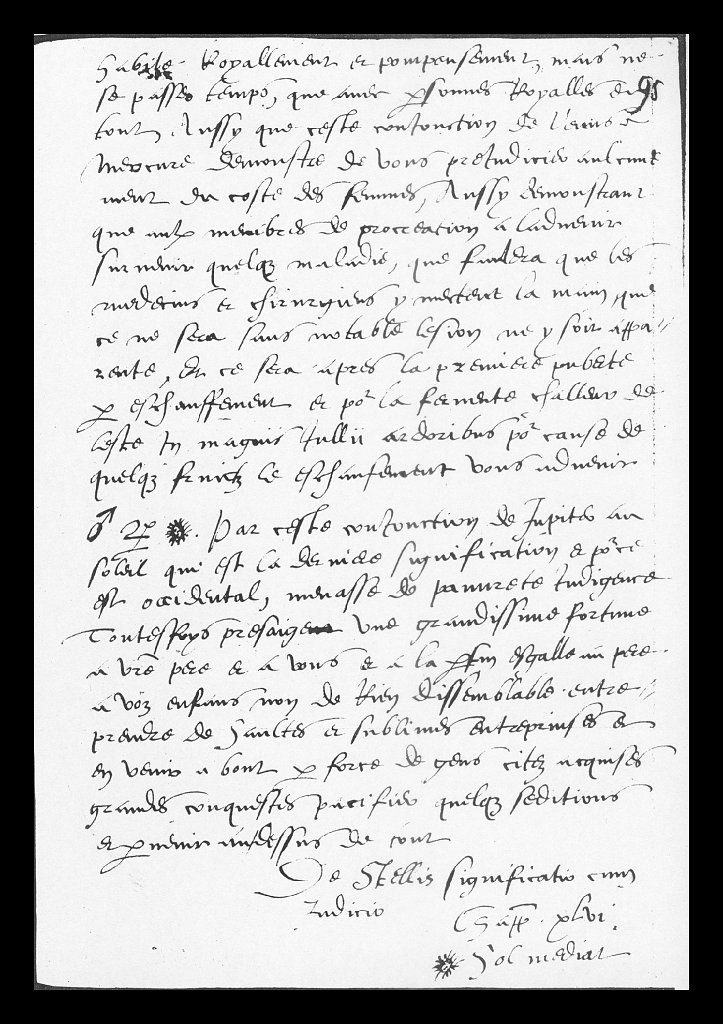 habite Royallement et pompeusement, mais ne
se passer temps, que avec personnes Royalles du
95
tout, Aussy que ceste conionction de Venus a
Mercure demonstre de vous preiudicier aulcune
ment du coste des femmes, Aussy demonstrant
que aulx membres de procreation a ladvenir
survenir quelqz maladie, que fauldra que les
medecins et chirurgiens y mectent la main, que
ce ne sera sans notable lesion ne y soit appa-
rente, Et ce sera apres la premiere puberte
p eschauffement et por la fervente challeur de
leste In magnis Iullii ardoribus por cause de
quelqz fruictz le eschaufement vous advenir
♂ ♃ ☀. Par ceste conionction de Iupiter au
soleil qui est la derniere signification et por ce
est occidental, menasse de pauvrete indigence
Toutesfoys presaige une grandissime fortune
a vre pere et a vous et a la parfin esgalle au pere
a voz enfans non de Rien dissemblable entre-
prendre de haultes et sublimes entreprinses et
en venir a bout p force de gens citez acquises
grandes conquestes pacifier quelqz seditions
et pvenir au dessus de tout
De Stellis significatio cum
Iudicio
Chapp. xlvi.
☀ Sol mediat